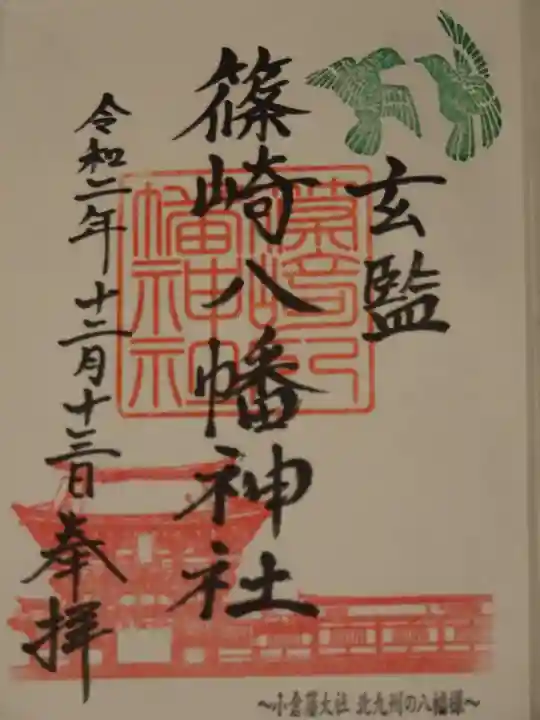 玄監
篠崎八幡神社
篠崎八幡神社
令和二年十二月十三日奉拝
〜小倉藩大社 北九州の八幡様〜